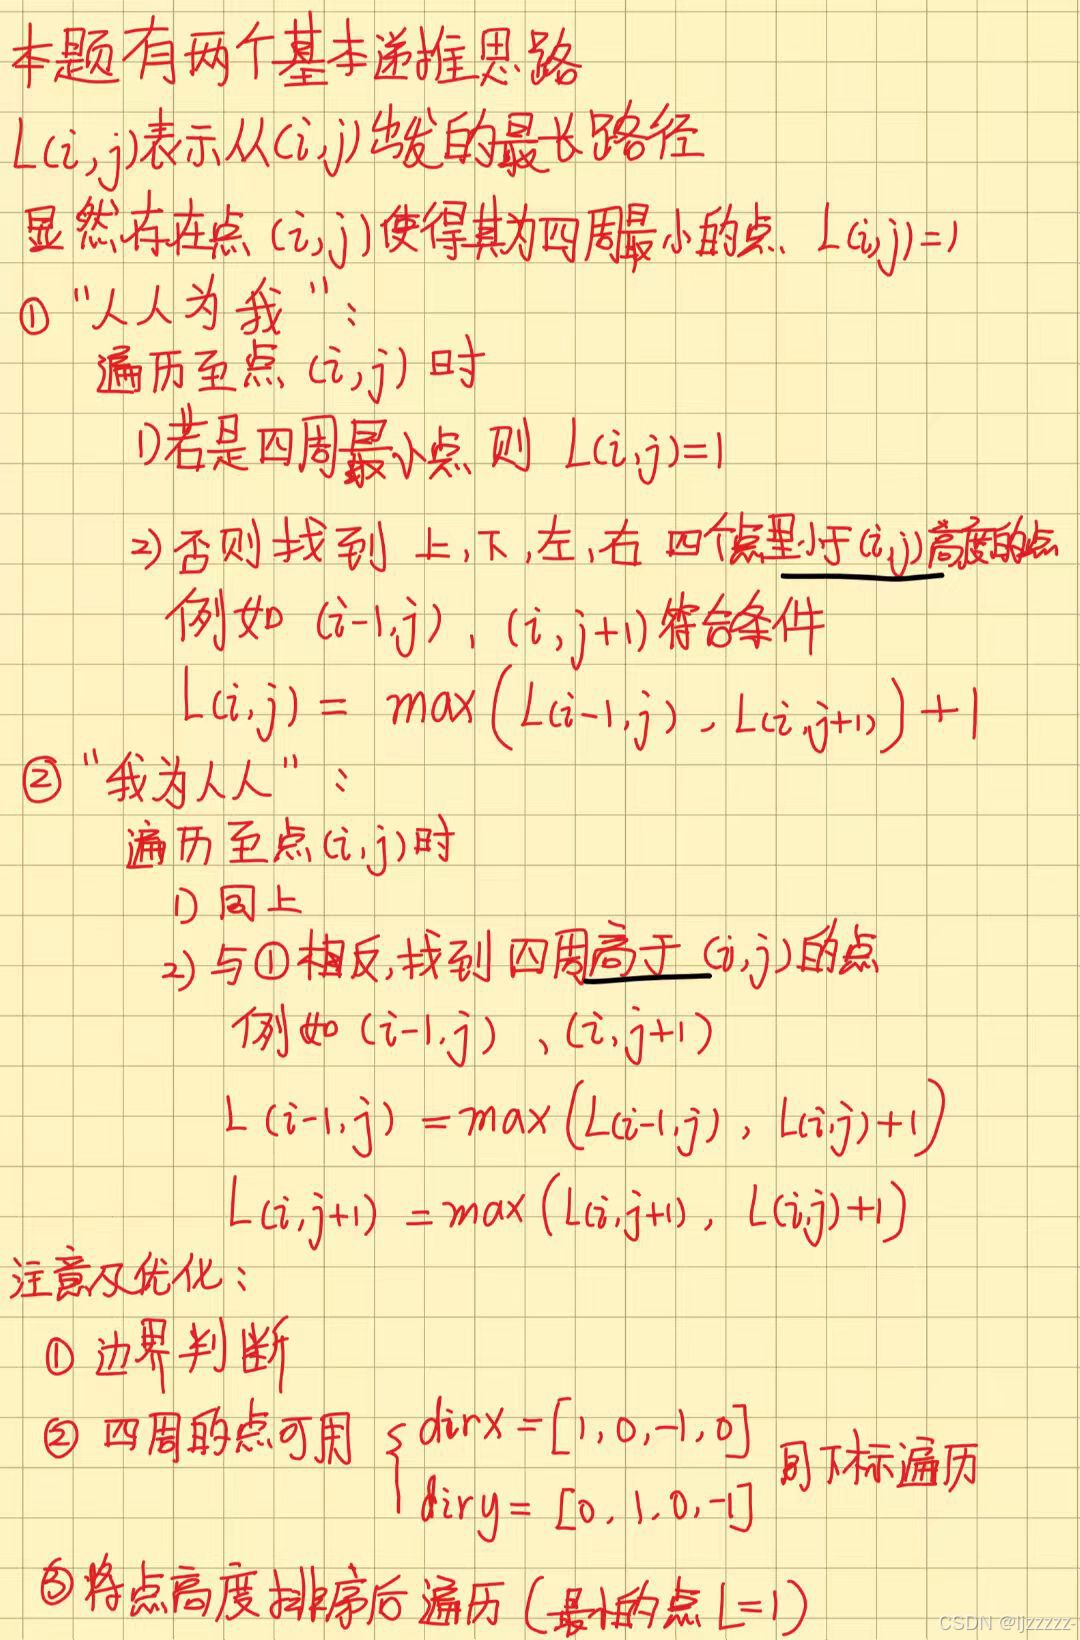 本题有两个基本递推思路
L(i,j)表示从(i,j)出发的最长路径
显然存在点(i,j)使得其为四周最小的点、L(i,j)=1
① "人人为我":
遍历至点(i,j)时
1)若是四周最小点则 L(i,j)=1
2)否则找到上,下,左,右 四个点里小于(i,j)高度的点
例如(i-1,j),(i,j+1)符合条件
L(i,j)= max(L(i-1,j),L(i,j+1))+1
② "我为人人":
遍历至点(i,j)时
1)同上
2)与①相反,找到四周高于(i,j)的点
例如(i-1,j)、(i,j+1)
L(i-1,j)=max(L(i-1,j),L(i,j)+1)
L(i,j+1)=max(L(i,j+1),L(i,j)+1)
注意及优化:
①边界判断
②四周的点可用 { dirx=[1,0,-1,0]
diry=[0,1,0,-1] 同下标遍历
③将点高度排序后遍历(最小的点L=1)
CSDN @ljzzzzz-